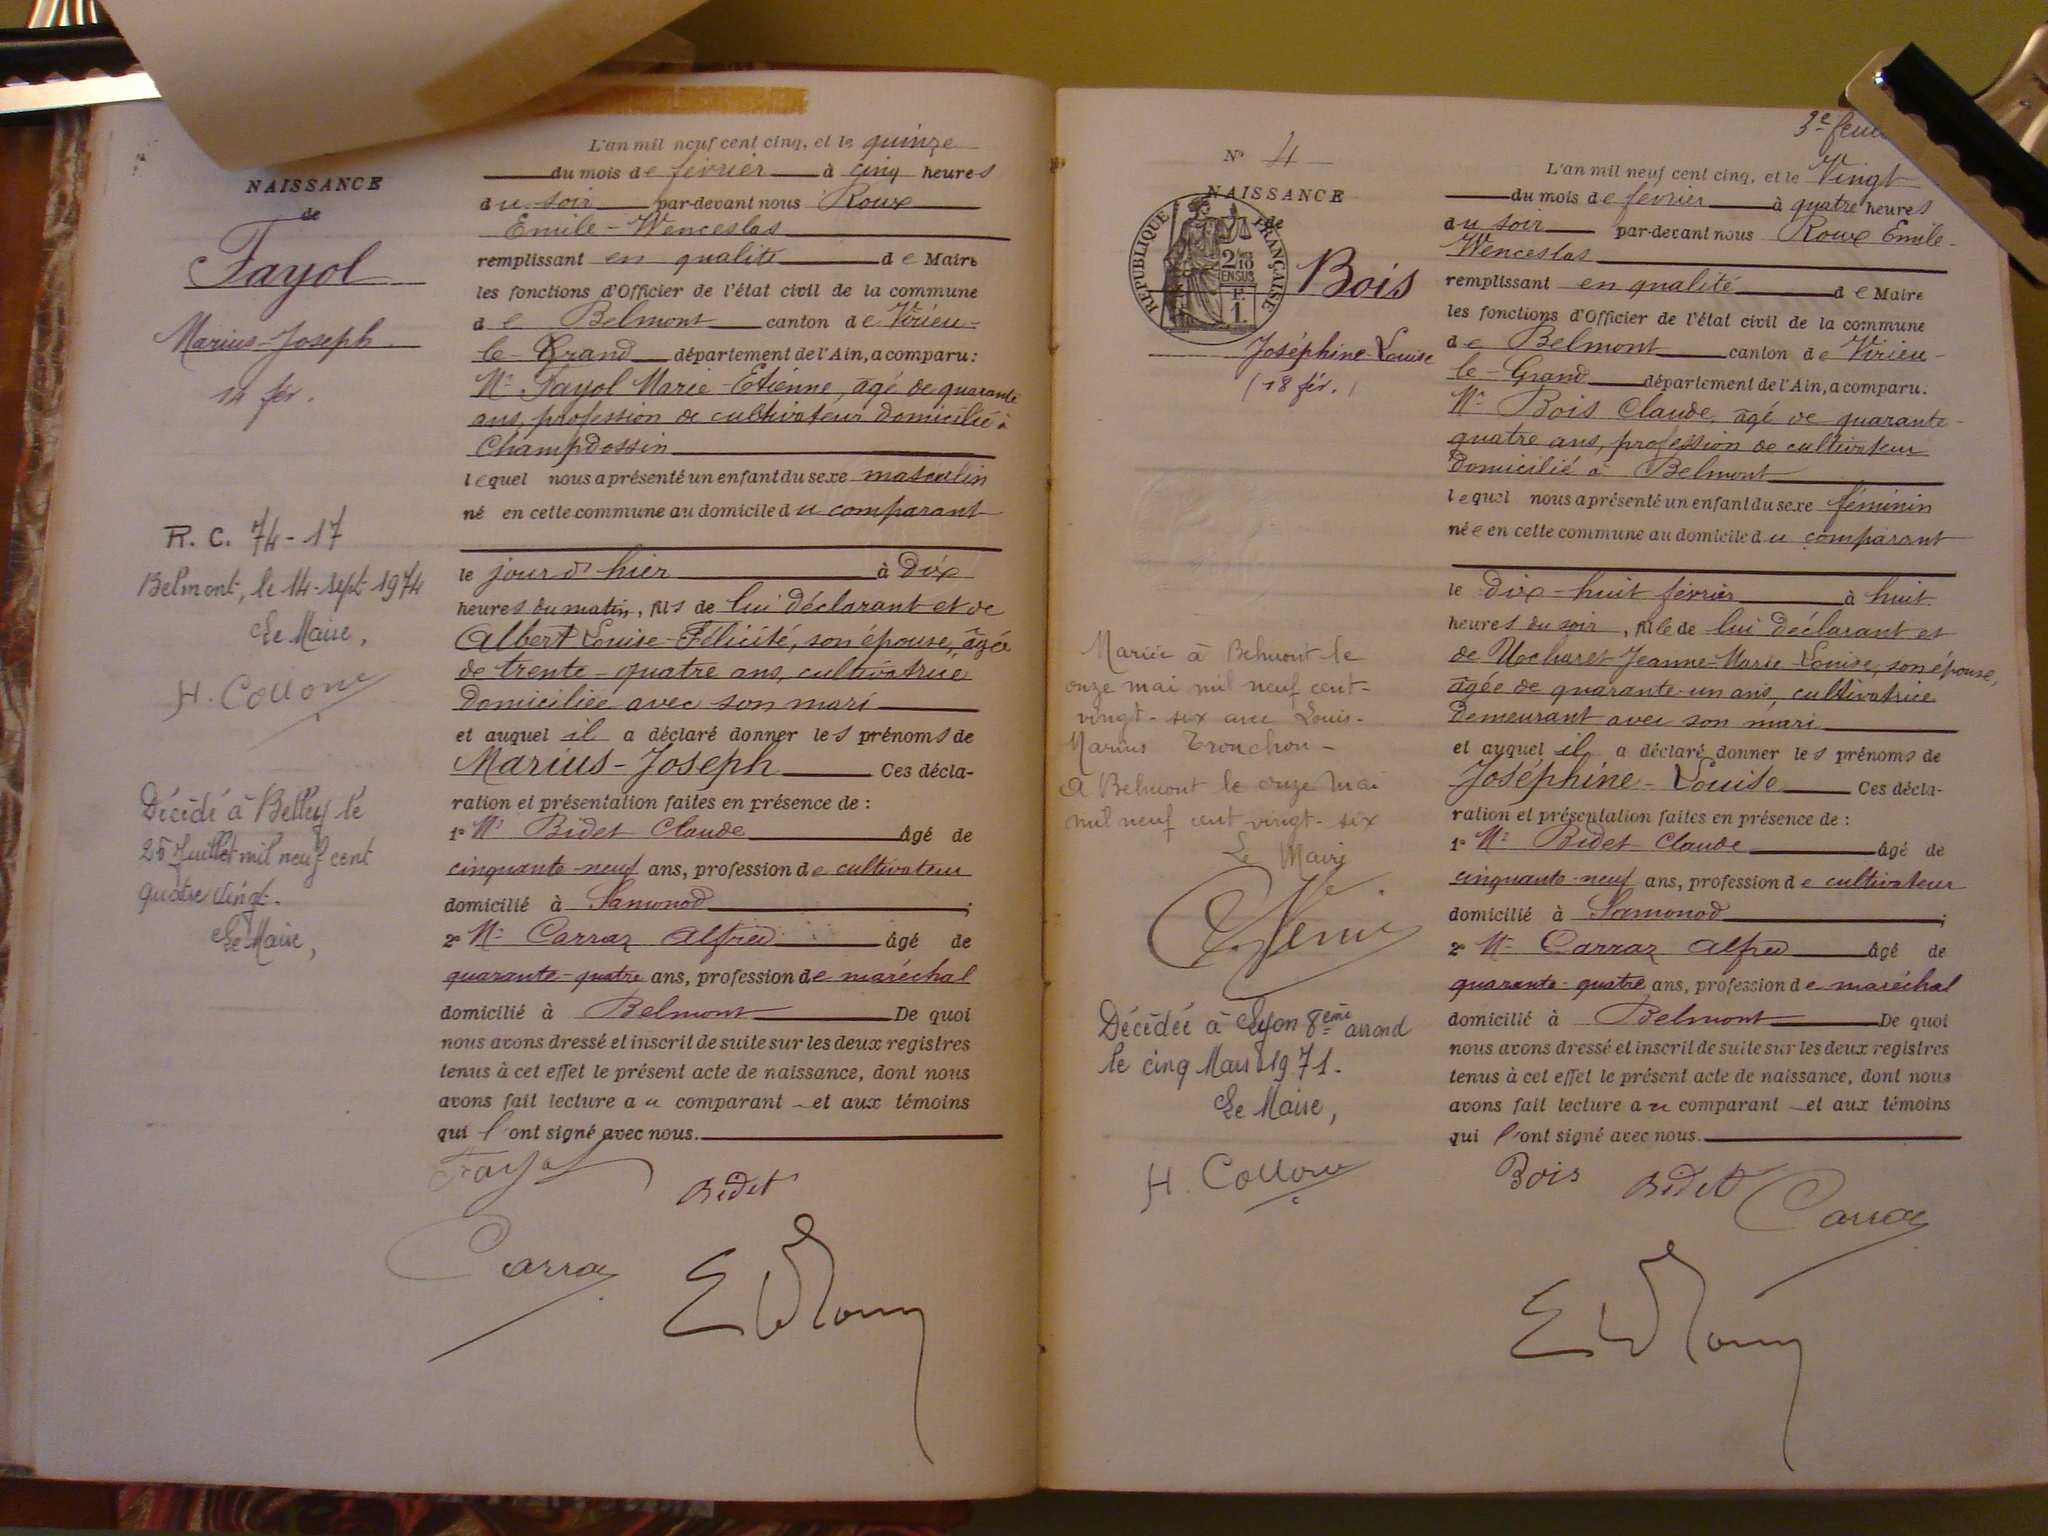 NAISSANCE
de
Fayol
Marius-Joseph
14 fév.
R. C. 74-17
Belmont, le 14-sept 1974
Le Maire,
H. Collomb
Décédé à Belley le
25 Juillet mil neuf cent
quatre vingt.
Le Maire,
L'an mil neuf cent cinq, et le quinze
du mois de février à cinq heures
du soir par-devant nous Roux
Emile-Wenceslas
remplissant en qualité de Maire
les fonctions d'Officier de l'état civil de la commune
de Belmont canton de Virieu-
le-Grand département de l'Ain, a comparu:
Mr Fayol Marie-Etienne, âgé de quarante
ans, profession de cultivateur domicilié à
Champdossin
lequel nous a présenté un enfant du sexe masculin
né en cette commune au domicile du comparant
le jour d'hier à dix
heures du matin, fils de lui déclarant et de
Albert Louise-Félicité, son épouse, âgée
de trente-quatre ans, cultivatrice
domiciliée avec son mari
et auquel il a déclaré donner les prénoms de
Marius-Joseph Ces décla-
ration et présentation faites en présence de :
1° Mr Bidet Claude âgé de
cinquante-neuf ans, profession de cultivateur
domicilié à Samonod ;
2° Mr Carraz Alfred âgé de
quarante-quatre ans, profession de maréchal
domicilié à Belmont De quoi
nous avons dressé et inscrit de suite sur les deux registres
tenus à cet effet le présent acte de naissance, dont nous
avons fait lecture au comparant et aux témoins
qui l'ont signé avec nous.
Fayol
Bidet
Carraz
E W Roux
3e feui
N° 4
NAISSANCE
de
REPUBLIQUE FRANÇAISE
2/10
EN SUS
P.
1.
Bois
Joséphine-Louise
(18 fév.)
Mariée à Belmont le
onze mai mil neuf cent-
vingt-six avec Louis-
Marius Tronchon-
A Belmont le onze mai
mil neuf cent vingt-six
Le Maire
Décédée à Lyon 8ème arrond
le cinq Mars 1971.
Le Maire,
H. Collomb
L'an mil neuf cent cinq, et le Vingt
du mois de février à quatre heures
du soir par-devant nous Roux Emile-
Wenceslas
remplissant en qualité de Maire
les fonctions d'Officier de l'état civil de la commune
de Belmont canton de Virieu-
le-Grand département de l'Ain, a comparu.
Mr Bois Claude, âgé de quarante-
quatre ans, profession de cultivateur
domicilié à Belmont
lequel nous a présenté un enfant du sexe féminin
née en cette commune au domicile du comparant
le dix-huit février à huit
heures du soir, fille de lui déclarant et
de Jeanne-Marie-Louise, son épouse,
âgée de quarante-un ans, cultivatrice
demeurant avec son mari
et auquel il a déclaré donner les prénoms de
Joséphine-Louise Ces décla-
ration et présentation faites en présence de :
1° Mr Bidet Claude âgé de
cinquante-neuf ans, profession de cultivateur
domicilié à Samonod ;
2° Mr Carraz Alfred âgé de
quarante-quatre ans, profession de maréchal
domicilié à Belmont De quoi
nous avons dressé et inscrit de suite sur les deux registres
tenus à cet effet le présent acte de naissance, dont nous
avons fait lecture au comparant et aux témoins
qui l'ont signé avec nous.
Bois
Bidet
Carraz
E W Roux